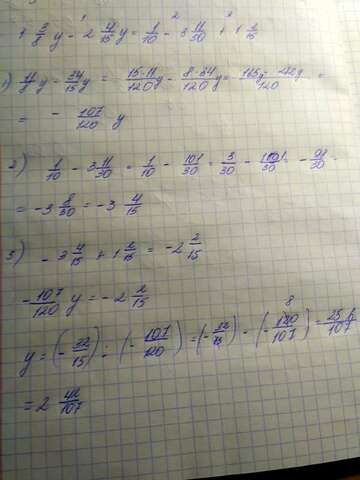 1 3/8 y - 2 4/15 y = 1/10 - 3 11/30 + 1 2/15
1) 11/8 y = 34/15 y = 15·11/120 y - 8·34/120 y = 165y - 272y/120 =
= - 107/120 y
2) 1/10 - 3 11/30 = 1/10 - 101/30 = 3/30 - 101/30 = - 98/30 =
= -3 8/30 = -3 4/15
3) -3 4/15 + 1 2/15 = -2 2/15
- 107/120 y = -2 2/15
y = (- 32/15) : (- 107/120) = (- 32/15) - (- 120/107) = 256/107
= 2 42/107